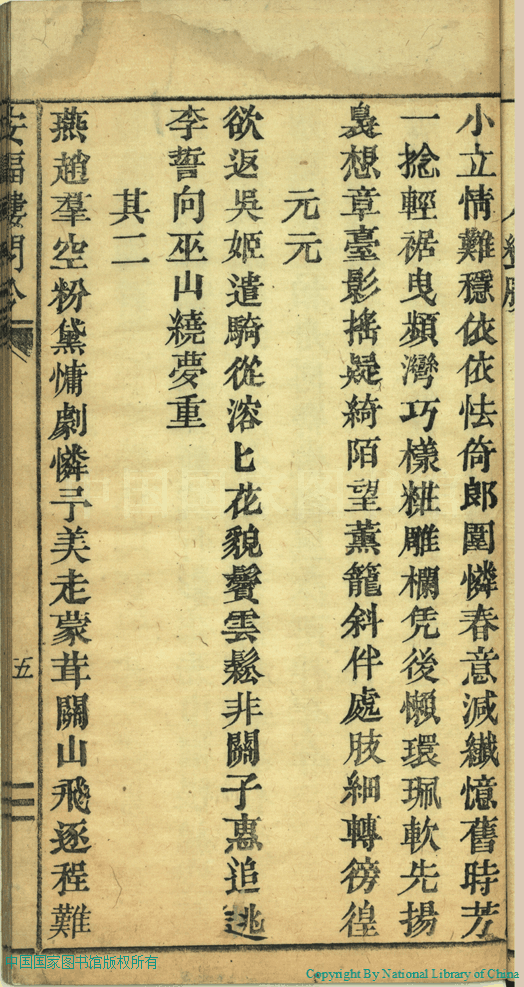 小立情難穩依依怯倚郎圍憐春意減纖憶舊時芳
一捻輕裾曳頻灣巧樣粧雕欄凭後懶環珮軟先揚
裊想章臺影搖疑綺陌望薰籠斜伴處肢細轉徬徨
元元
欲返吳姬遣騎從溶匕花貌鬢雲鬆非關子惠追逃
李誓向巫山繞夢重
其二
燕趙羣空粉黛慵劇憐予美走蒙茸關山飛逐程難
五
中国国家图书馆
中国国家图书馆版权所有
Copyright By National Library of China